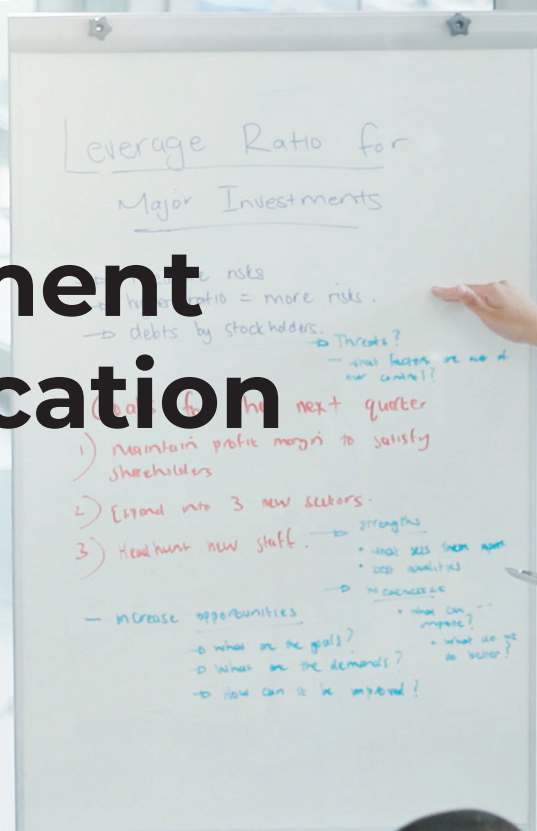 Leverage Ratio for
Major Investments
ment
risks
higher ratio = more risks.
debts by stockholders.
Threats?
what factors are out of
our control?
cation
Goals for the next quarter
1) Maintain profit margin to satisfy
shareholders
2) Expand into 3 new sectors.
3) Headhunt new staff.
Strengths
what sets them apart
best qualities
Weaknesses
what can
improve?
What do we
do better?
Increase opportunities
What are the goals?
What are the demands?
How can it be improved?